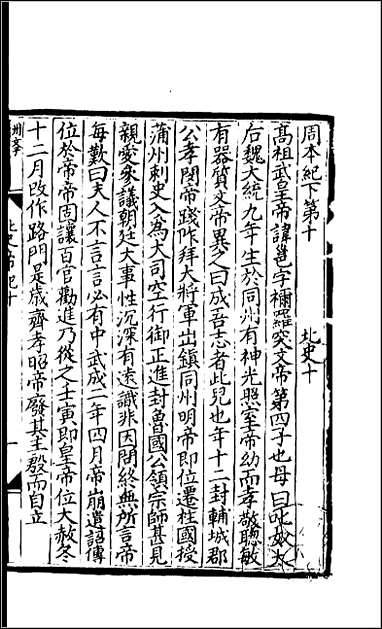 周本紀下第十　北史十
高祖武皇帝諱邕字禰羅突文帝第四子也母曰叱奴太
后魏大統九年生於同州有神光照室帝幼而孝敬聰敏
有器質文帝異之曰成吾志者此兒也年十二封輔城郡
公孝閔帝踐阼拜大將軍出鎮同州明帝即位遷柱國授
蒲州刺史入為大司空行御正進封魯國公領宗師甚見
親愛參議朝廷大事性沉深有遠識非因問終無所言帝
每歎曰夫人不言言必有中武成二年四月帝崩遺詔傳
位於帝帝固讓百官勸進乃從之壬寅即皇帝位大赦冬
十二月改作路門是歲齊孝昭帝廢其主殷而自立
北史帝紀十